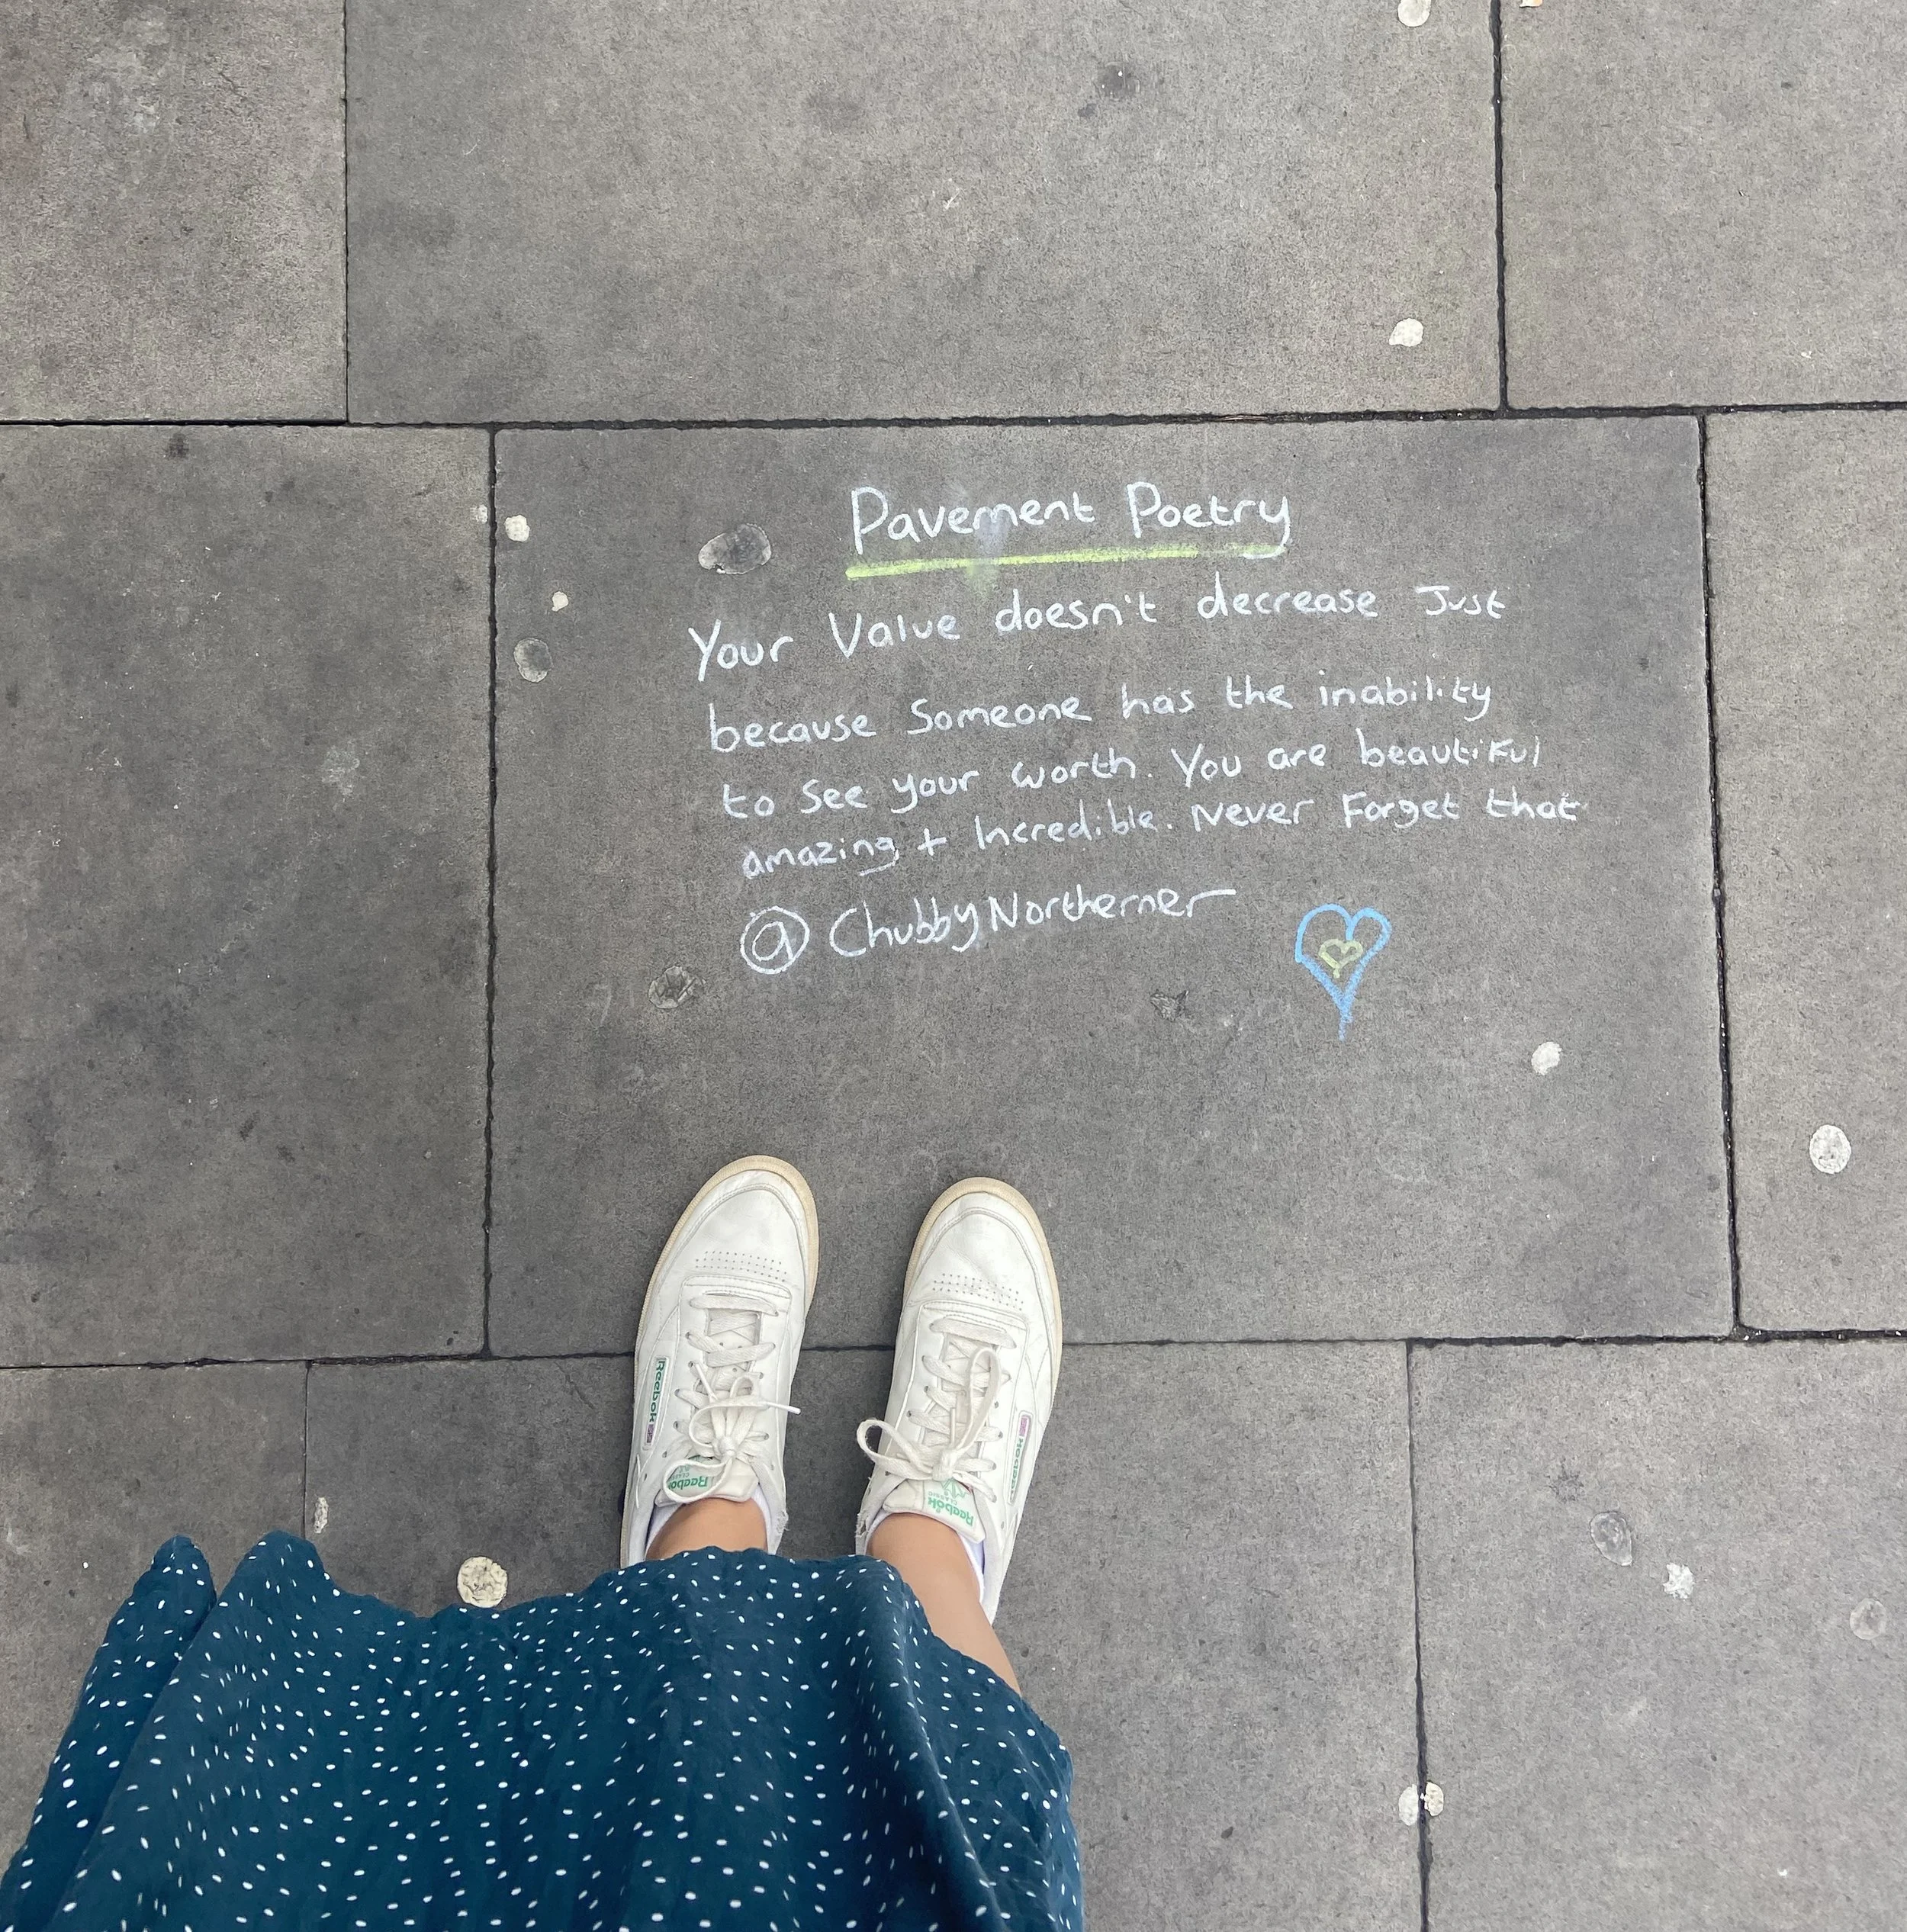 Pavement Poetry
Your Value doesn't decrease Just
because Someone has the inability
to See your worth. You are beautiful
amazing + Incredible. Never Forget that
@ChubbyNortherner
Reebok
Reebok
Reebok
CLASSIC
Reebok
CLASSIC